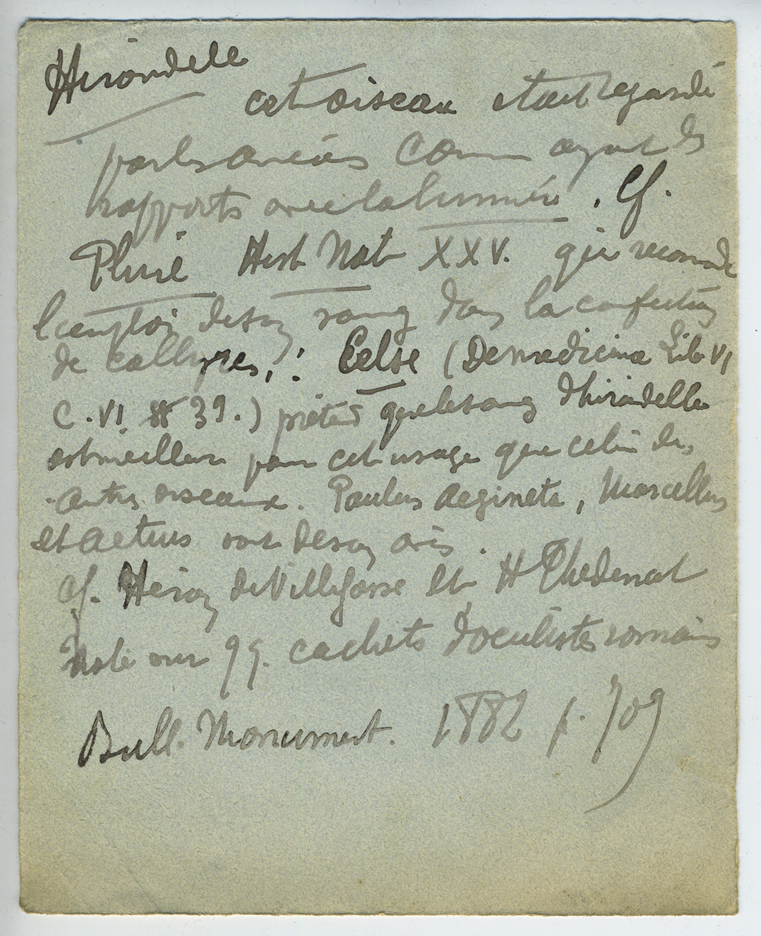 Hirondelle
cet oiseau etait regardé
par les anciens comm ayant des
rapports avec la lumière. Cf.
Pline Hist Nat XXV. qui recomde
l'emploi de son sang dans la confection
de collyres, ! Celse (De medicina Lib VI
C. VI § 39.) prétend que le sang d'hirondelle
est meilleur pour cet usage que celui des
autres oiseaux. Paulus Aegineta, Marcellus
et Aetius sont de son avis.
cf. Héron de Villefosse et H Thedenat
Note sur qq. cachets d'oculistes romains
Bull. Monument. 1882 p. 709